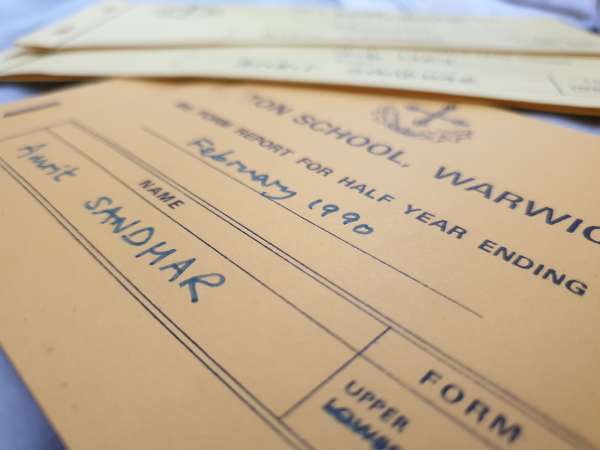 TON SCHOOL, WARWIC
6th FORM REPORT FOR HALF YEAR ENDING
February 1990
NAME
Amrit SANDHAR
FORM
UPPER
LOWER